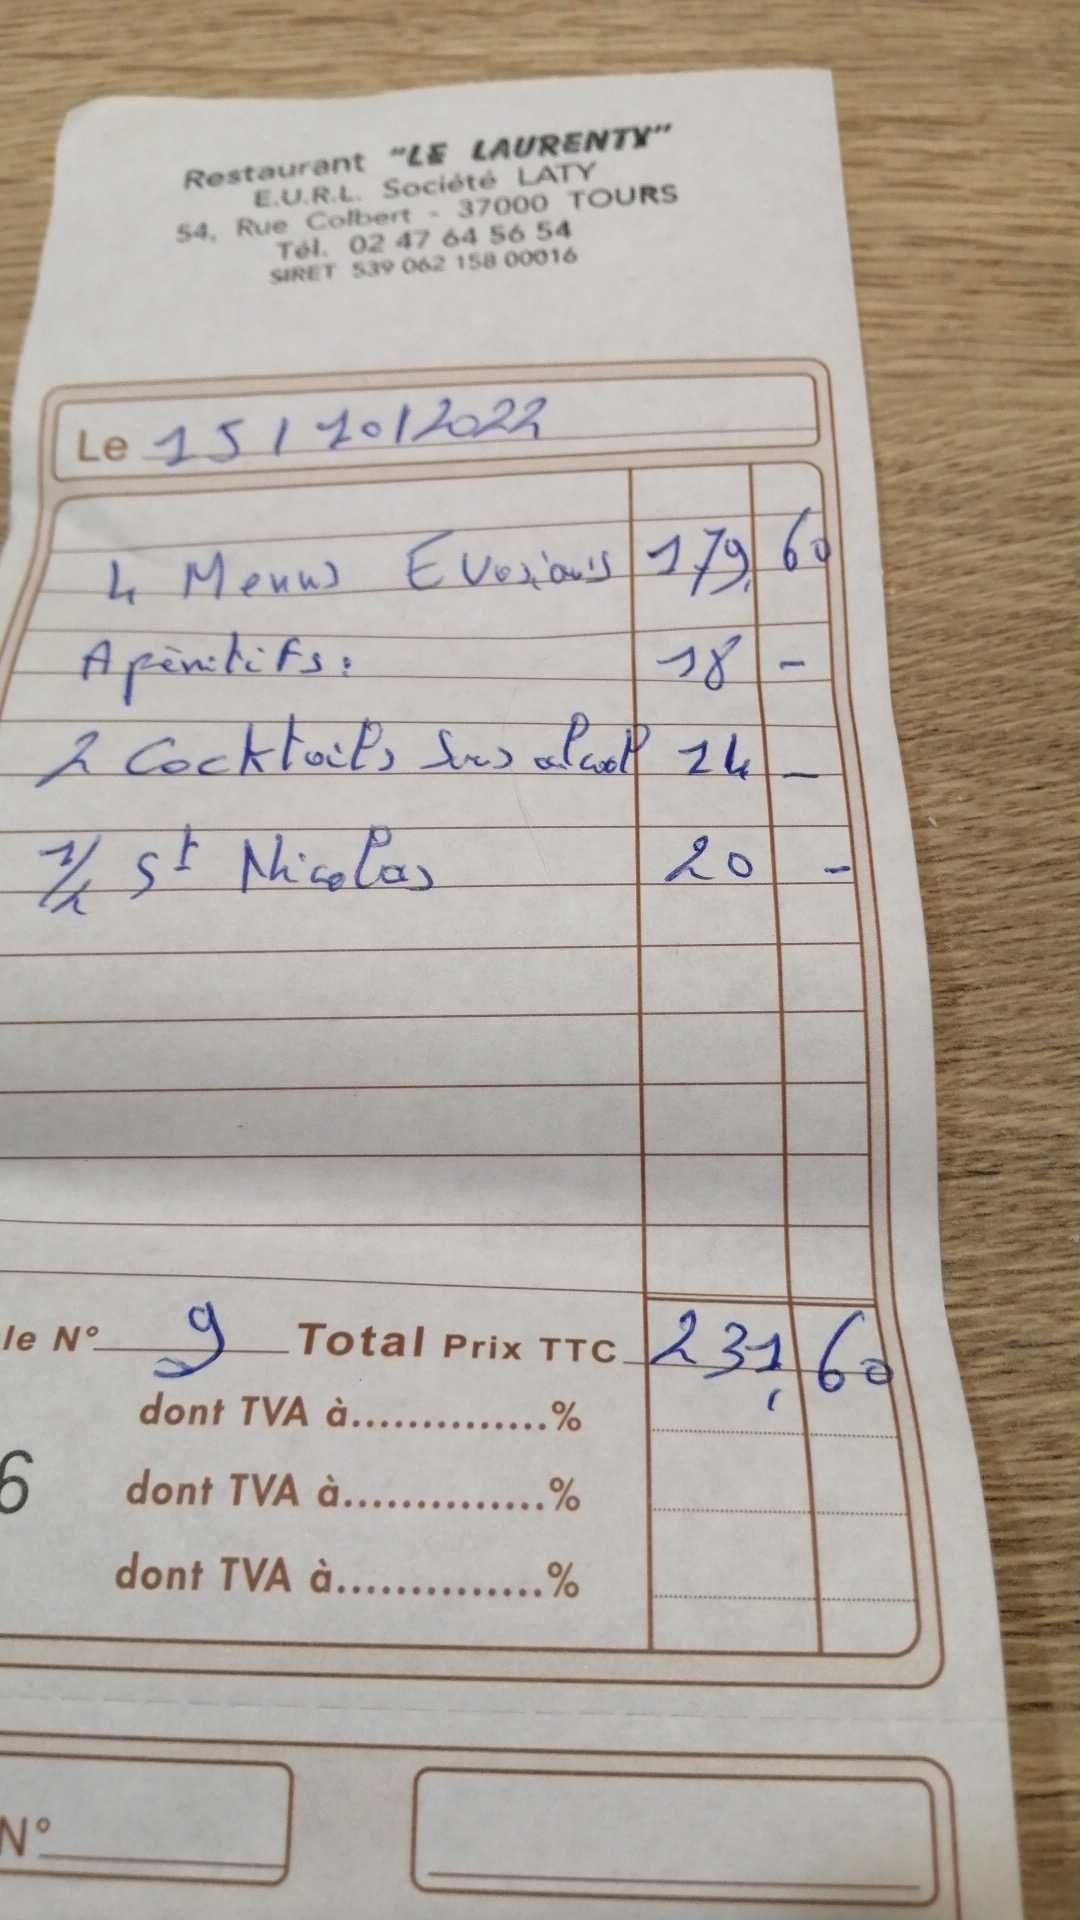 Restaurant "LE LAURENTY"
E.U.R.L. Société LATY
54, Rue Colbert - 37000 TOURS
Tél. 02 47 64 56 54
SIRET 539 062 158 00016
Le 15/10/2022
4 Menus Evasions 179,60
Apéritifs: 18 -
2 Cocktails sans alcool 14 -
1/2 St Nicolas 20 -
le N° 9 Total Prix TTC 231,60
dont TVA à..............%
6 dont TVA à..............%
dont TVA à..............%
N°